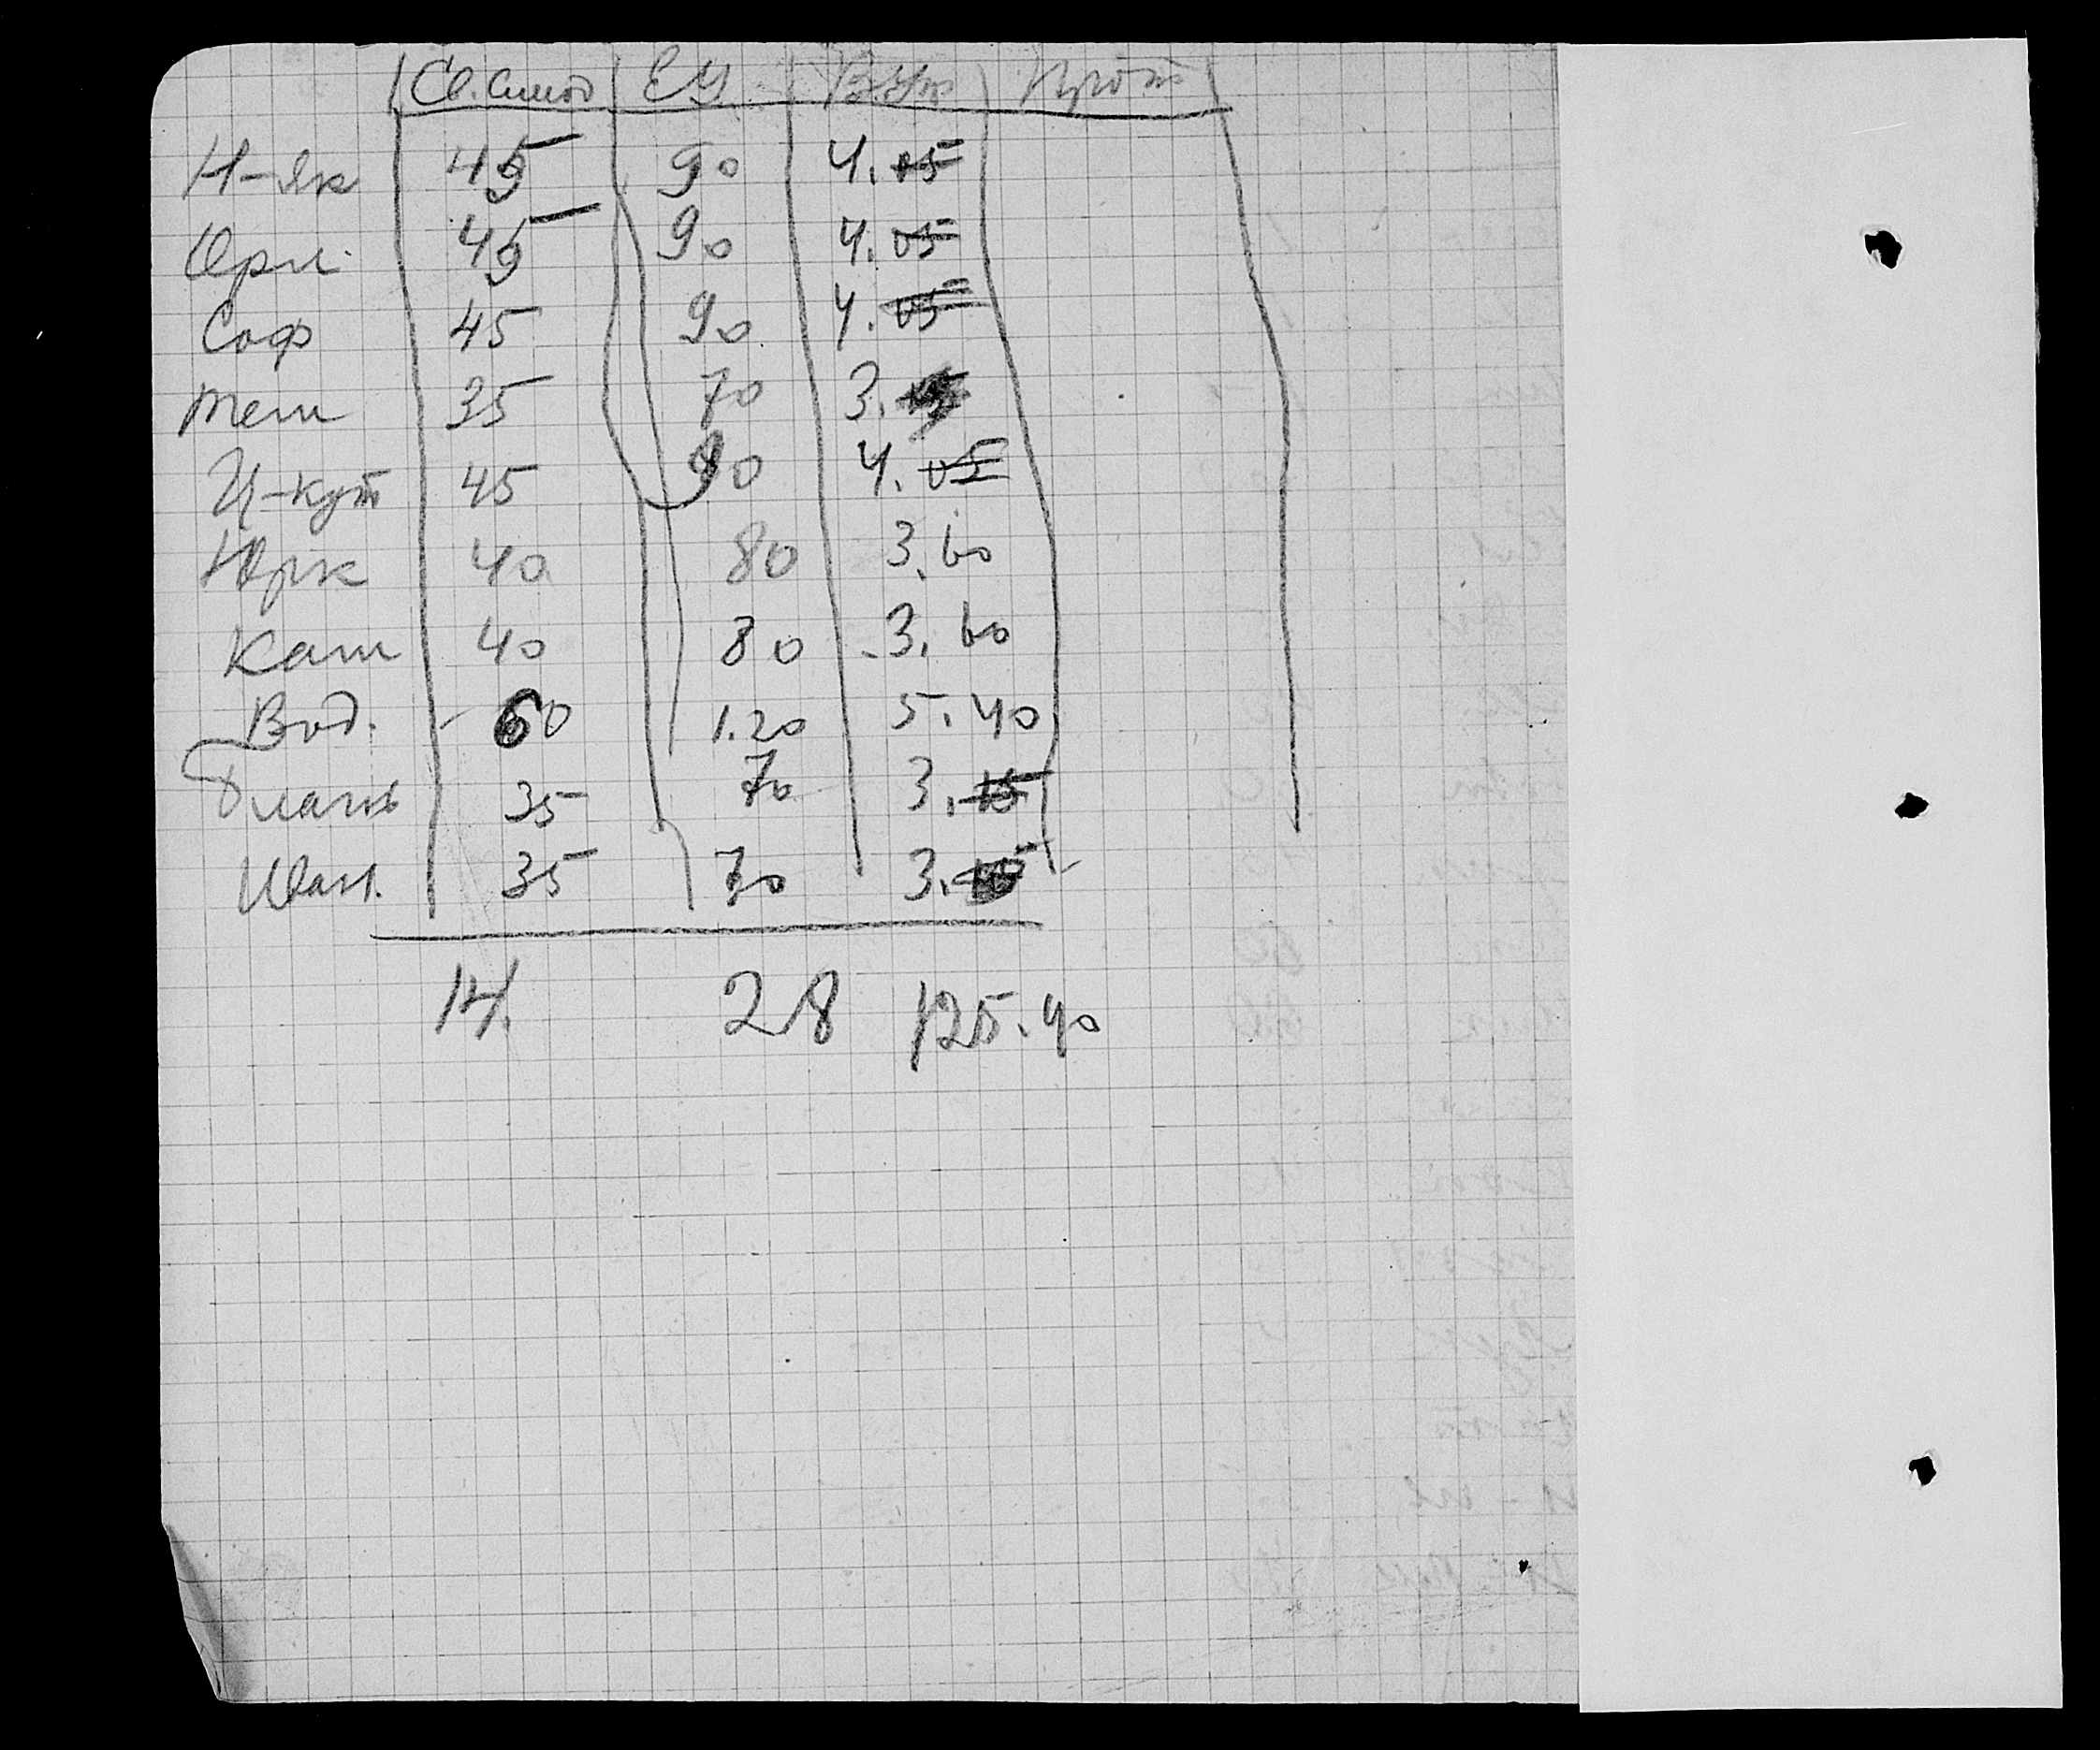 Св. Синод ЕУ В.Укр Прот
Н-Як 45 90 4.05
Орл. 45 90 4.05
Соф 45 90 4.05
Теш 35 70 3.
Ц-кут 45 90 4.05
Юрк 40 80 3.60
Кам 40 80 3.60
Вод. 60 1.20 5.40
35 70 3.15
Иван. 35 70 3.
14. 28 125.40